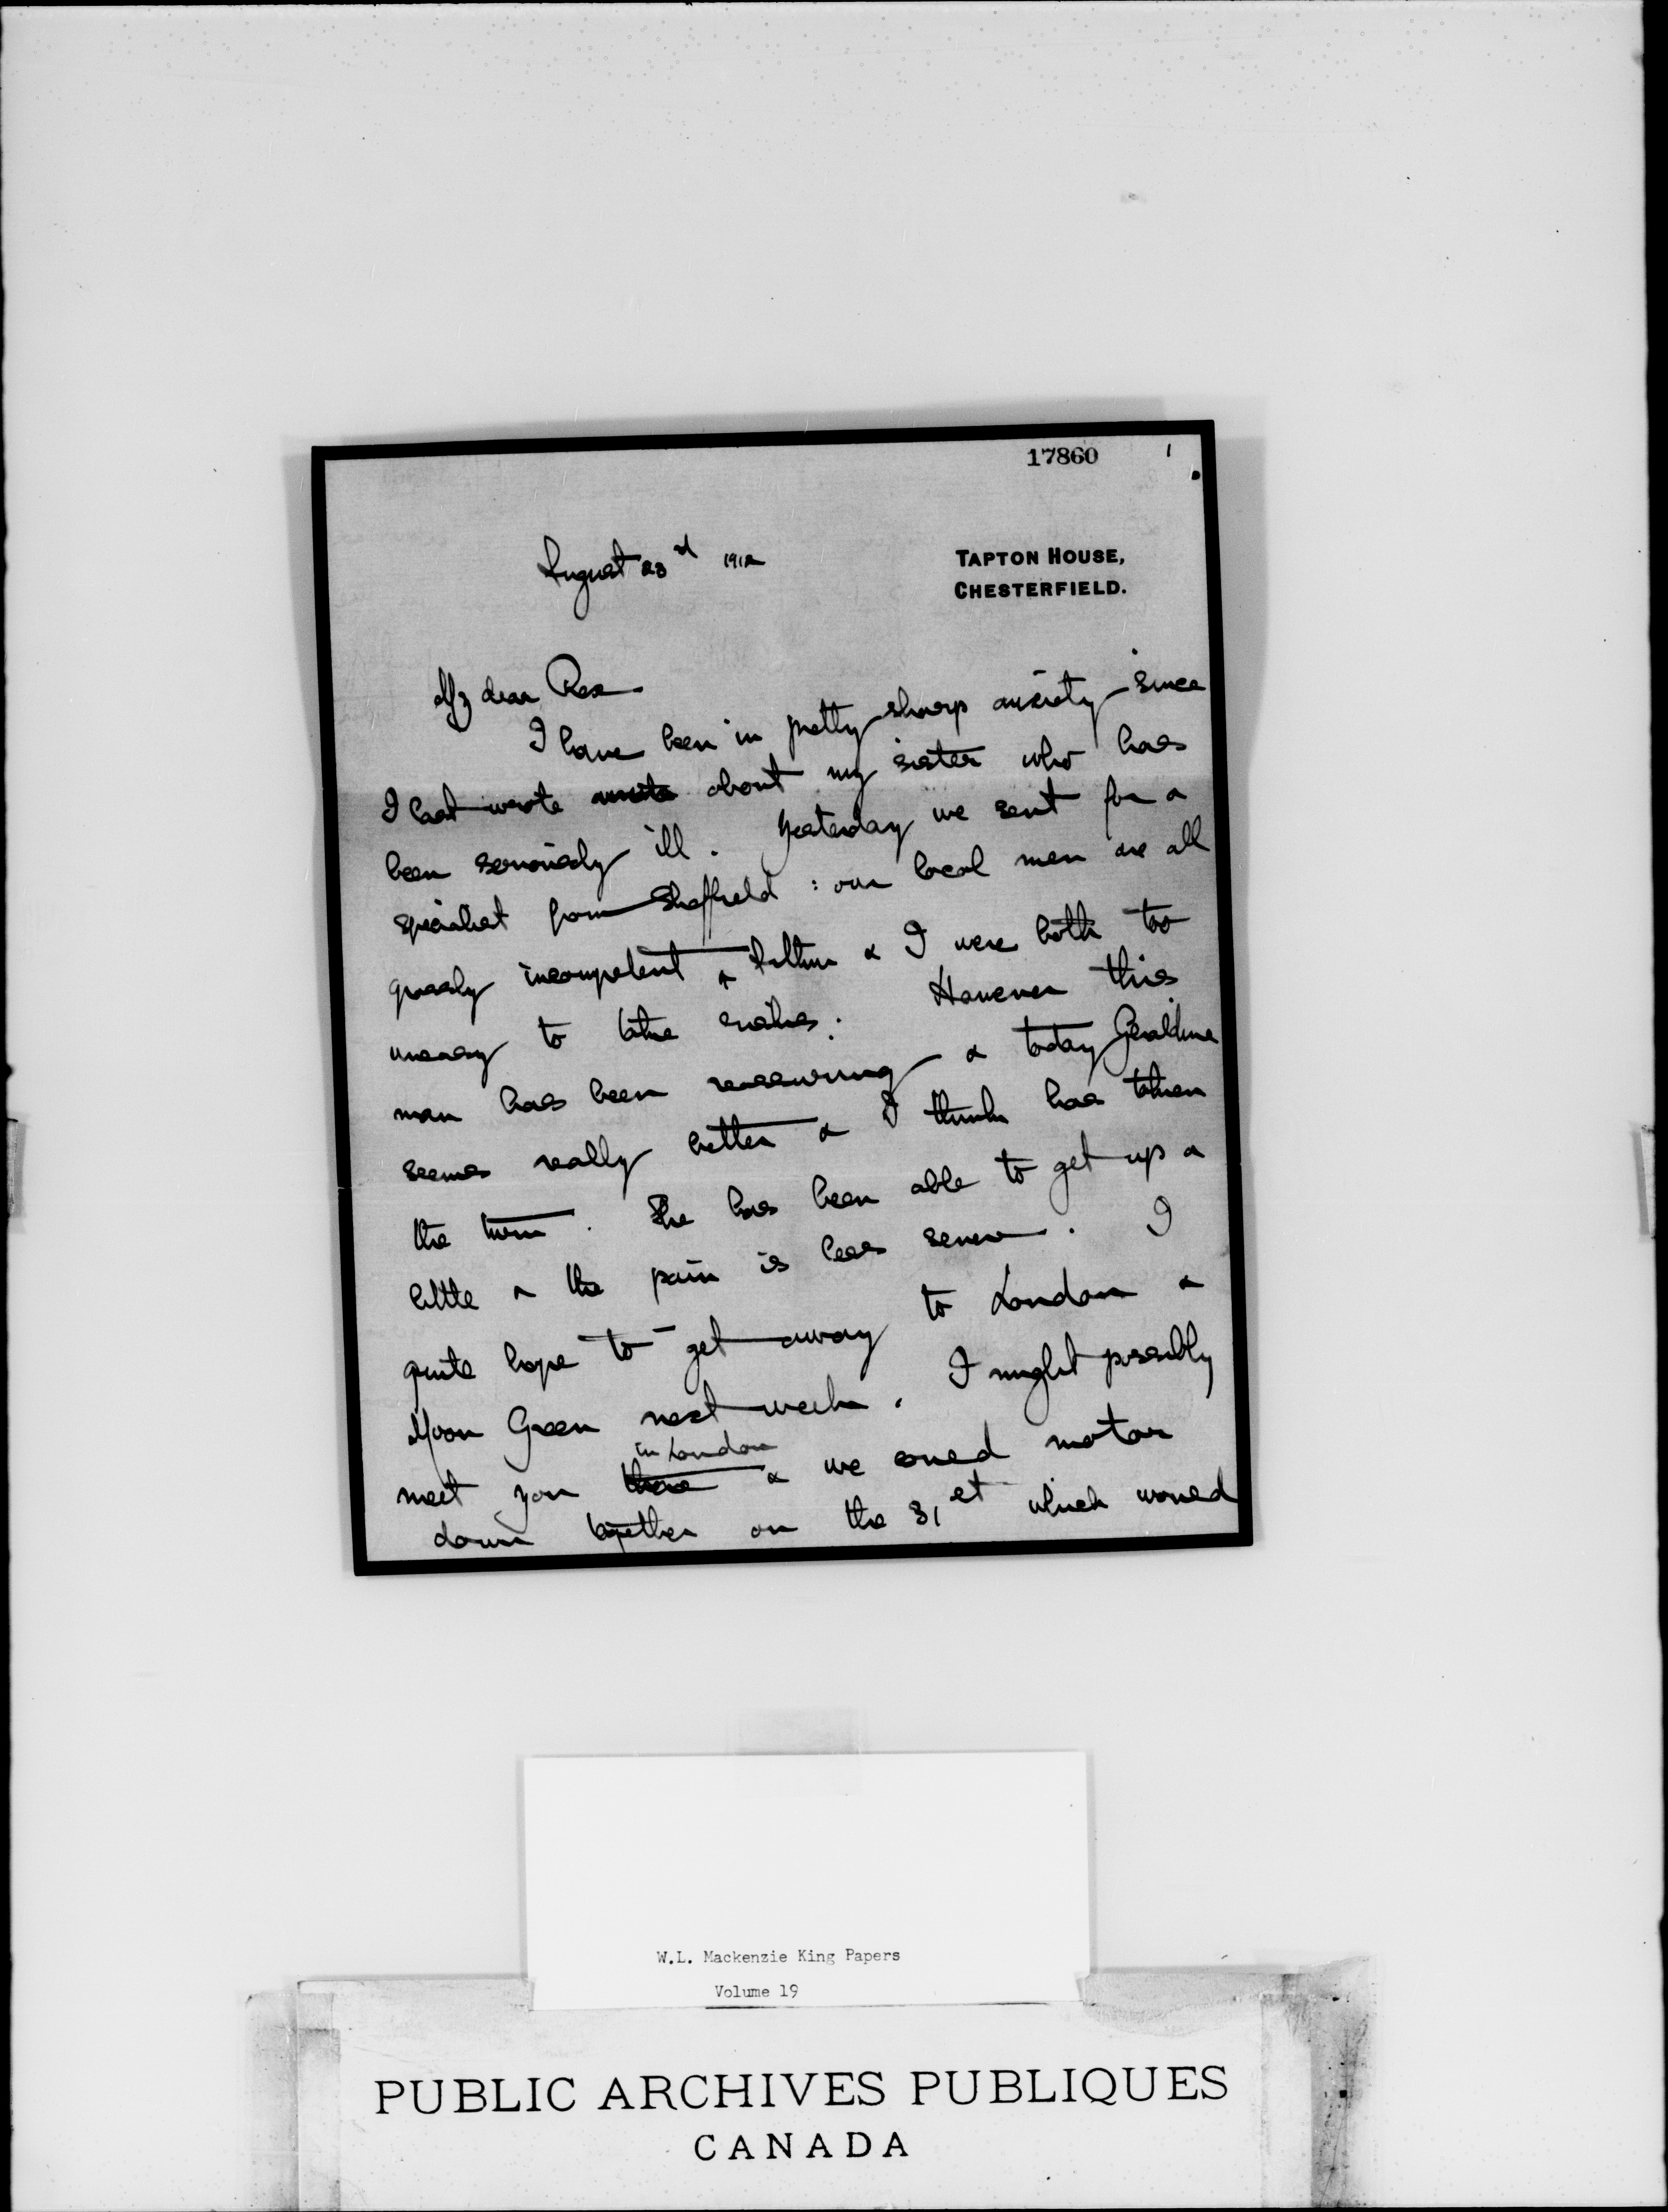 17860 1
August 23rd 1912
TAPTON HOUSE,
CHESTERFIELD.
My dear Rex
I have been in pretty sharp anxiety since
I last wrote about my sister who has
been seriously ill. Yesterday we sent for a
specialist from Sheffield: our local men are all
grossly incompetent & Arthur & I were both too
uneasy to take risks. However this
man has been reassuring & today Geraldine
seems really better & I think has taken
the turn. She has been able to get up a
little & the pain is less severe. I
quite hope to get away to London &
Moor Green next week. I might possibly
in London
meet you there & we could motor
down together on the 31st which would
W.L. Mackenzie King Papers
Volume 19
PUBLIC ARCHIVES PUBLIQUES
CANADA